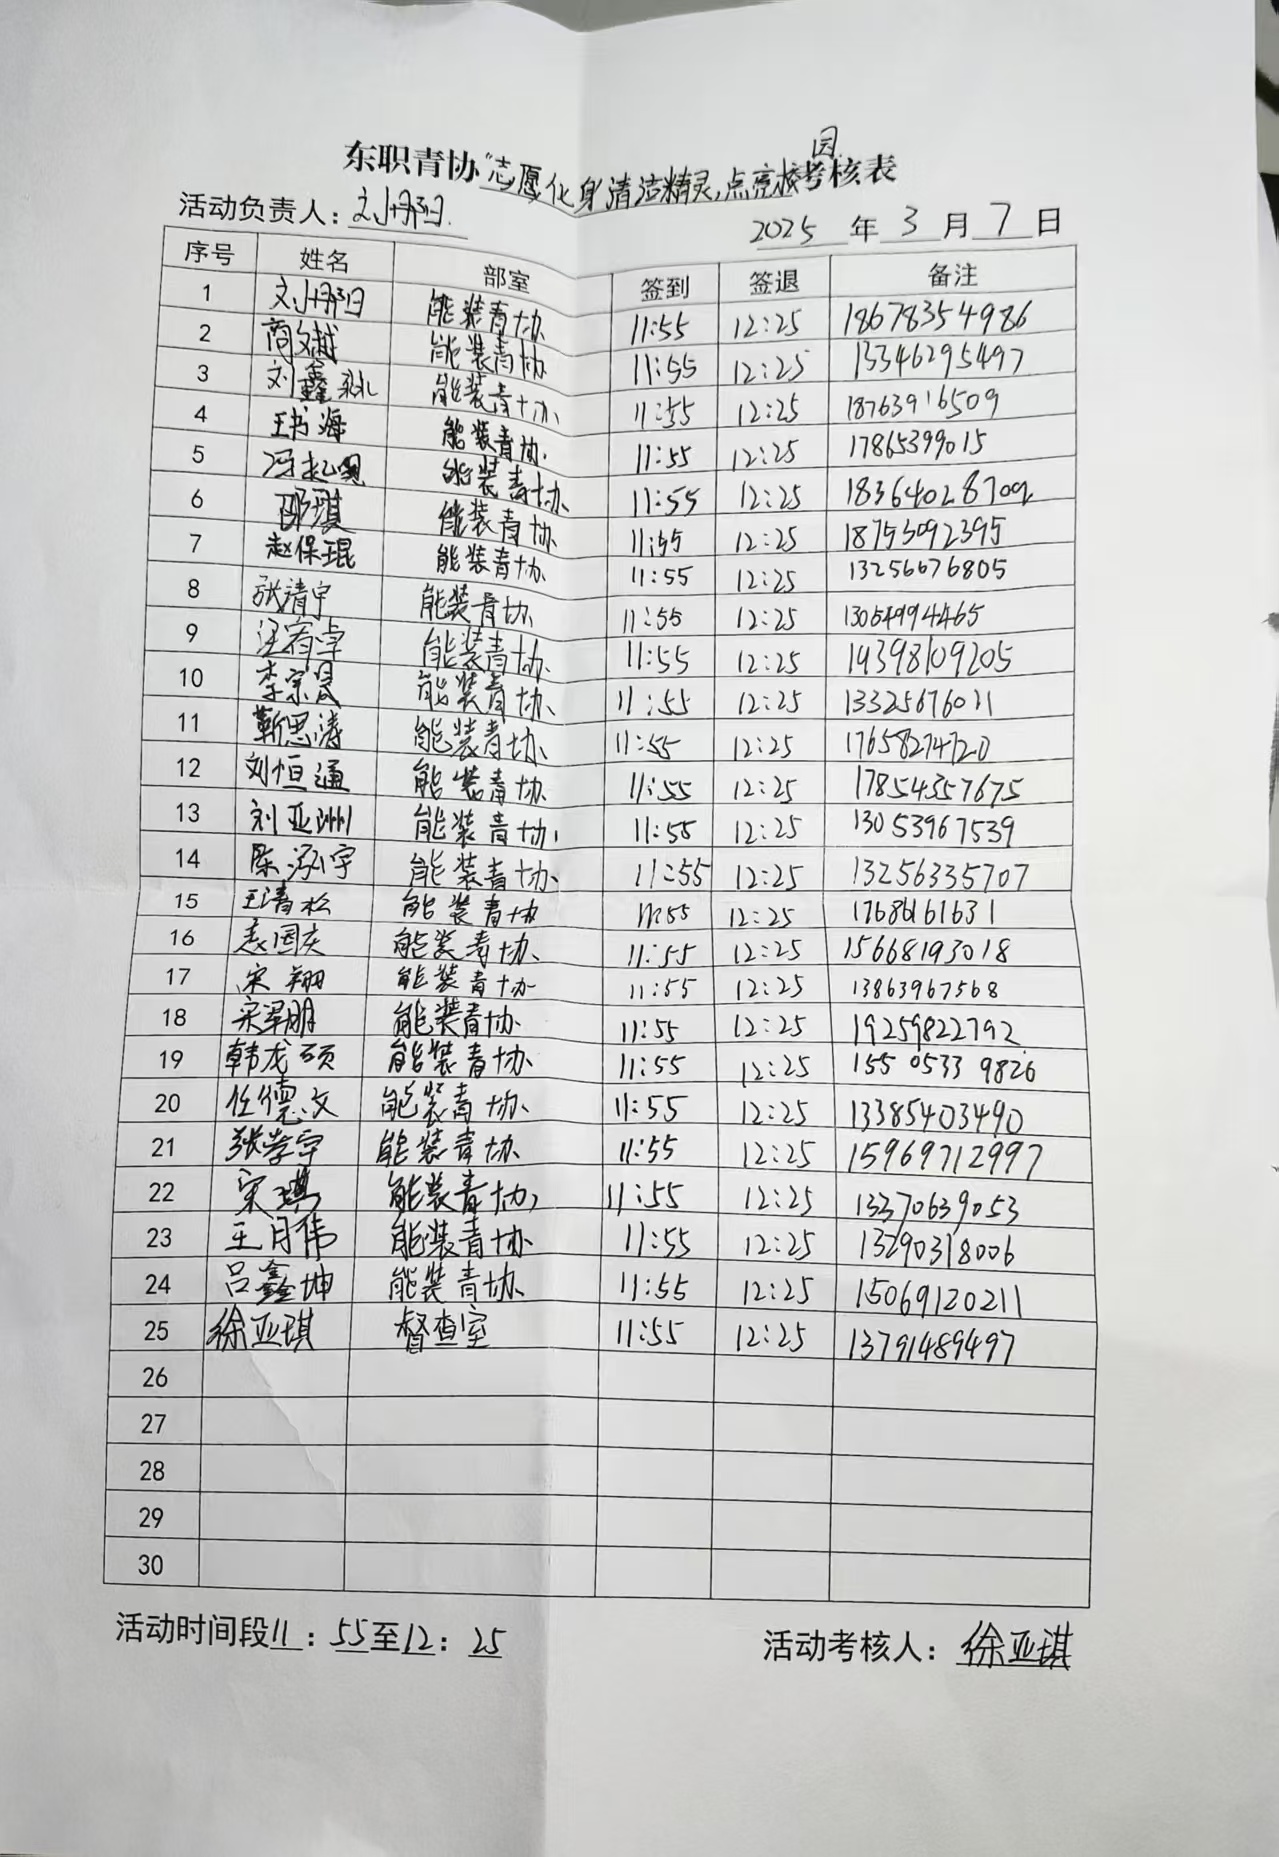 东职青协"志愿化身清洁精灵,点亮校园考核表
活动负责人: 刘丹阳
2025 年 3 月 7 日
序号 姓名 部室 签到 签退 备注
1 刘丹阳 能装青协 11:55 12:25 18678354986
2 商文越 能装青协 11:55 12:25 13346295497
3 刘鑫 能装青协 11:55 12:25 18763916509
4 王书海 能装青协 11:55 12:25 17865399015
5 能装青协 11:55 12:25 18364028709
6 邵琪 能装青协 11:55 12:25 18753092395
7 赵保琨 能装青协 11:55 12:25 13256676805
8 张清宇 能装青协 11:55 12:25 13054994465
9 汪宥卓 能装青协 11:55 12:25 19398109205
10 李宗晟 能装青协 11:55 12:25 13325676021
11 靳思涛 能装青协 11:55 12:25 17658274720
12 刘恒通 能装青协 11:55 12:25 17854357675
13 刘亚洲 能装青协 11:55 12:25 13053967539
14 陈泓宇 能装青协 11:55 12:25 13256335707
15 王清松 能装青协 11:55 12:25 17686161631
16 袁国庆 能装青协 11:55 12:25 15668193018
17 宋翔 能装青协 11:55 12:25 13863967568
18 宋泽朋 能装青协 11:55 12:25 19259822792
19 韩龙硕 能装青协 11:55 12:25 155 0533 9826
20 任德文 能装青协 11:55 12:25 13385403490
21 张孝宇 能装青协 11:55 12:25 15969712997
22 宋琪 能装青协 11:55 12:25 13370639053
23 王月伟 能装青协 11:55 12:25 13290318006
24 吕鑫坤 能装青协 11:55 12:25 15069120211
25 徐亚琪 督查室 11:55 12:25 13791489497
26
27
28
29
30
活动时间段11:55至12:25
活动考核人: 徐亚琪